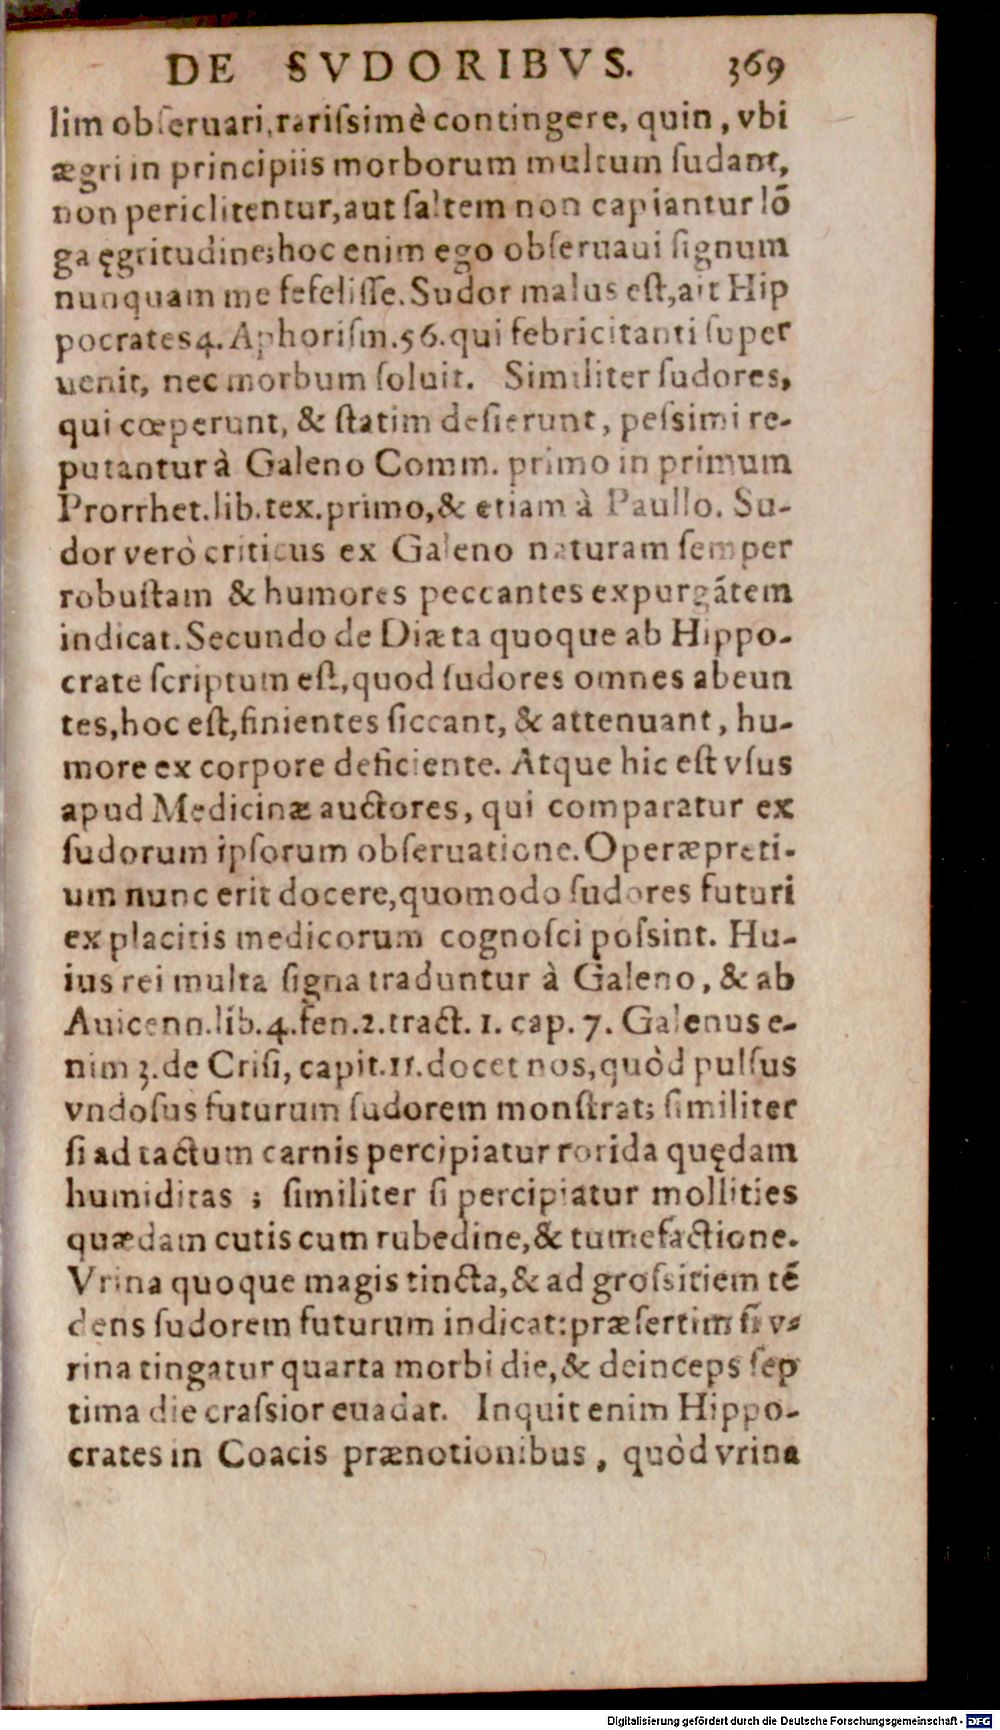 DE SVDORIBVS. 369
lim obſeruari, rariſsimè contingere, quin, vbi
ægri in principiis morborum multum ſudant,
non periclitentur, aut ſaltem non capiantur lō
ga ęgritudine; hoc enim ego obſeruaui ſignum
nunquam me fefeliſſe. Sudor malus eſt, ait Hip
pocrates 4. Aphoriſm. 56. qui febricitanti ſuper
uenit, nec morbum ſoluit. Similiter ſudores,
qui cœperunt, & ſtatim deſierunt, peſsimi re-
putantur à Galeno Comm. primo in primum
Prorrhet. lib. tex. primo, & etiam à Paullo. Su-
dor verò criticus ex Galeno naturam ſemper
robuſtam & humores peccantes expurgātem
indicat. Secundo de Diæta quoque ab Hippo-
crate ſcriptum eſt, quod ſudores omnes abeun
tes, hoc eſt, finientes ſiccant, & attenuant, hu-
more ex corpore deficiente. Atque hic eſt vſus
apud Medicinæ auctores, qui comparatur ex
ſudorum ipſorum obſeruatione. Operæpreti-
um nunc erit docere, quomodo ſudores futuri
ex placitis medicorum cognoſci poſsint. Hu-
ius rei multa ſigna traduntur à Galeno, & ab
Auicenn. lib. 4. fen. 2. tract. 1. cap. 7. Galenus e-
nim 3. de Criſi, capit. 11. docet nos, quòd pulſus
vndoſus futurum ſudorem monſtrat; ſimiliter
ſi ad tactum carnis percipiatur rorida quędam
humiditas ; ſimiliter ſi percipiatur mollities
quædam cutis cum rubedine, & tumefactione.
Vrina quoque magis tincta, & ad groſsitiem tē
dens ſudorem futurum indicat: præſertim ſi v-
rina tingatur quarta morbi die, & deinceps ſep
tima die craſsior euadat. Inquit enim Hippo-
crates in Coacis prænotionibus, quòd vrina
Digitalisierung gefördert durch die Deutsche Forschungsgemeinschaft - DFG